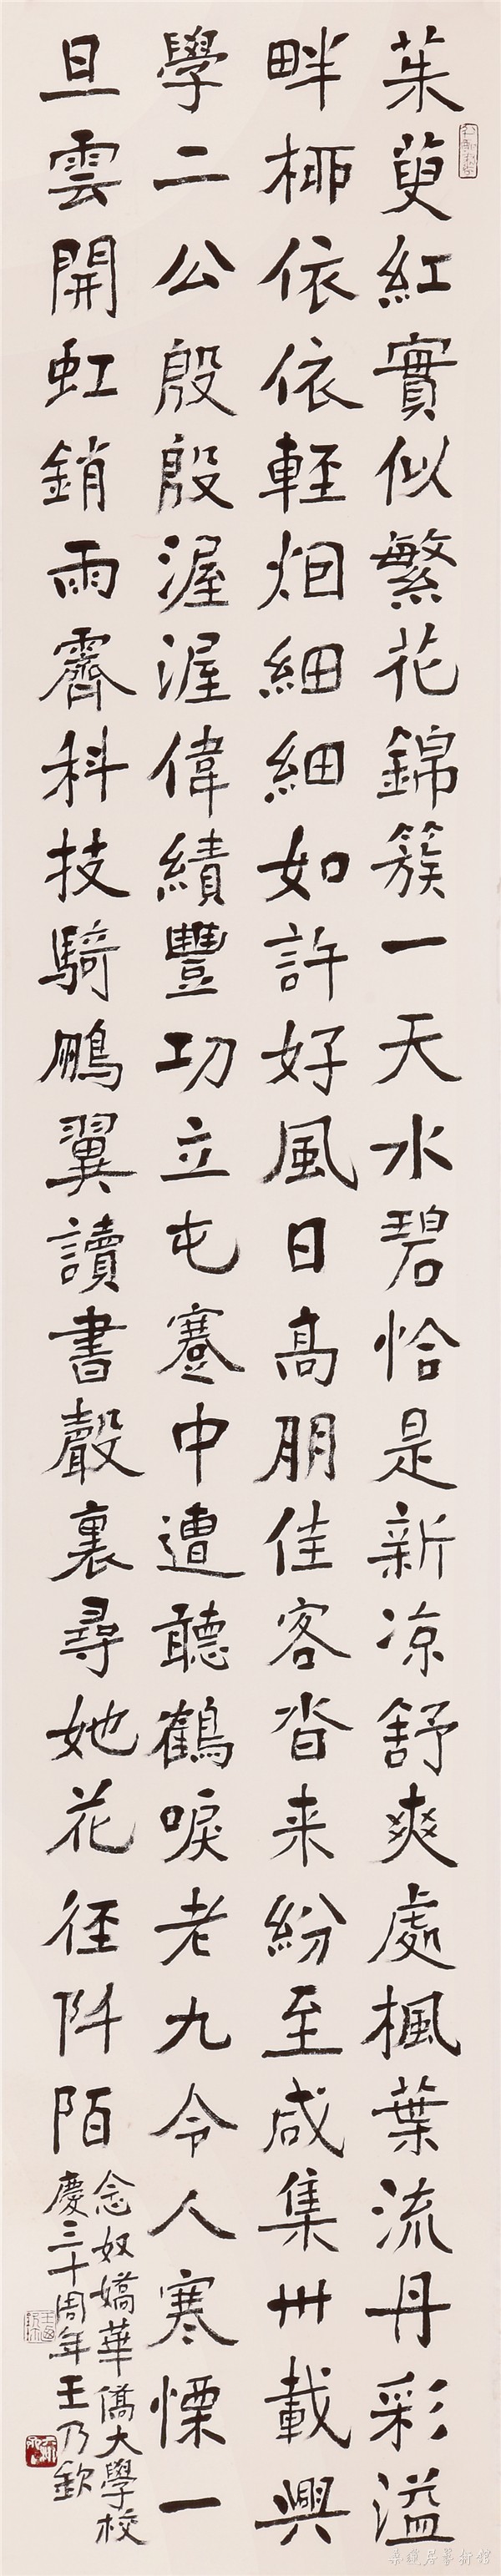 茱萸紅實似繁花錦簇一天水碧恰是新凉舒爽處楓葉流丹彩溢
畔栁依依輕烟細細如許好風日高朋佳客沓来紛至咸集卅載興
學二公殷殷渥渥偉績豐功立屯蹇中遭聽鶴唳老九令人寒慄一
旦雲開虹銷雨霽科技騎鵬翼讀書聲裏尋她花徑阡陌
念奴嬌華僑大學校
慶三十周年王乃欽